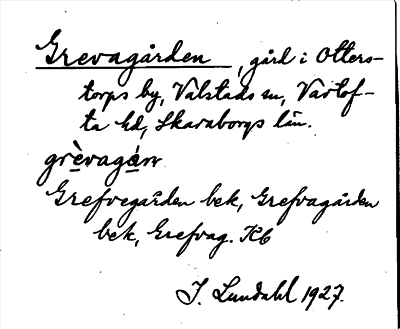 Grevagården, gård i Otters-
torps by, Valstads sn, Vartof-
ta hd, Skaraborgs län.
grèvagán
Grefvegården bek, Grefvagården
bek, Grefvag. Kb
J. Lundahl 1927.